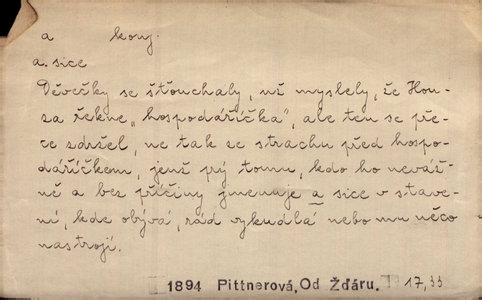 a konj.
a. sice
Děvečky se šťouchaly, už myslely, že Hon-
za řekne „hospodáříčka“, ale ten se pře-
ce zdržel, ne tak ze strachu před hospo-
dáříčkem, jenž prý tomu, kdo ho neváž-
ně a bez příčiny jmenuje a sice v stave-
ní, kde obývá, rád vykudlá nebo mu něco
nastrojí.
1894 Pittnerová, Od Žďáru. 17, 33